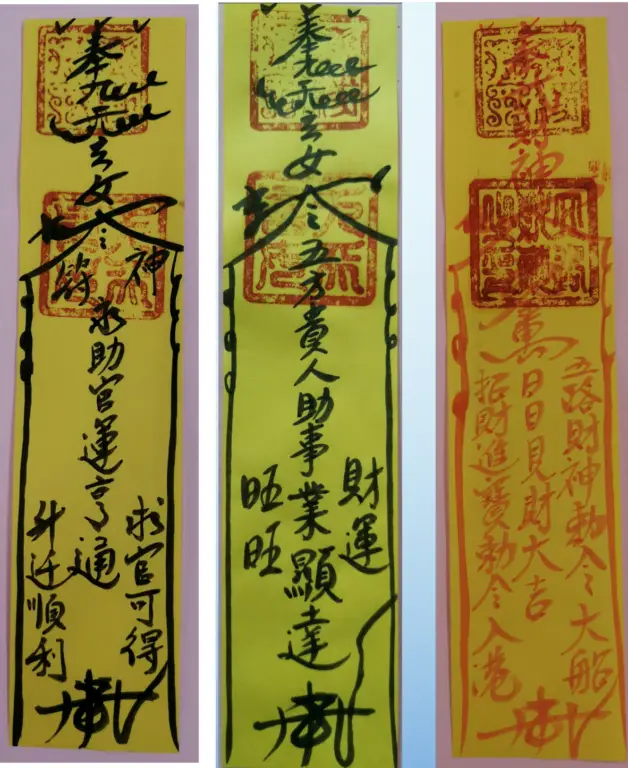 奉九天玄女令
神
求助官運亨通
求官可得
升迁順利
奉九天玄女令五方貴人助事業顯達
財運
旺旺
財神
五路財神勅令大船
日日見財大吉
招財進寶勅令入港